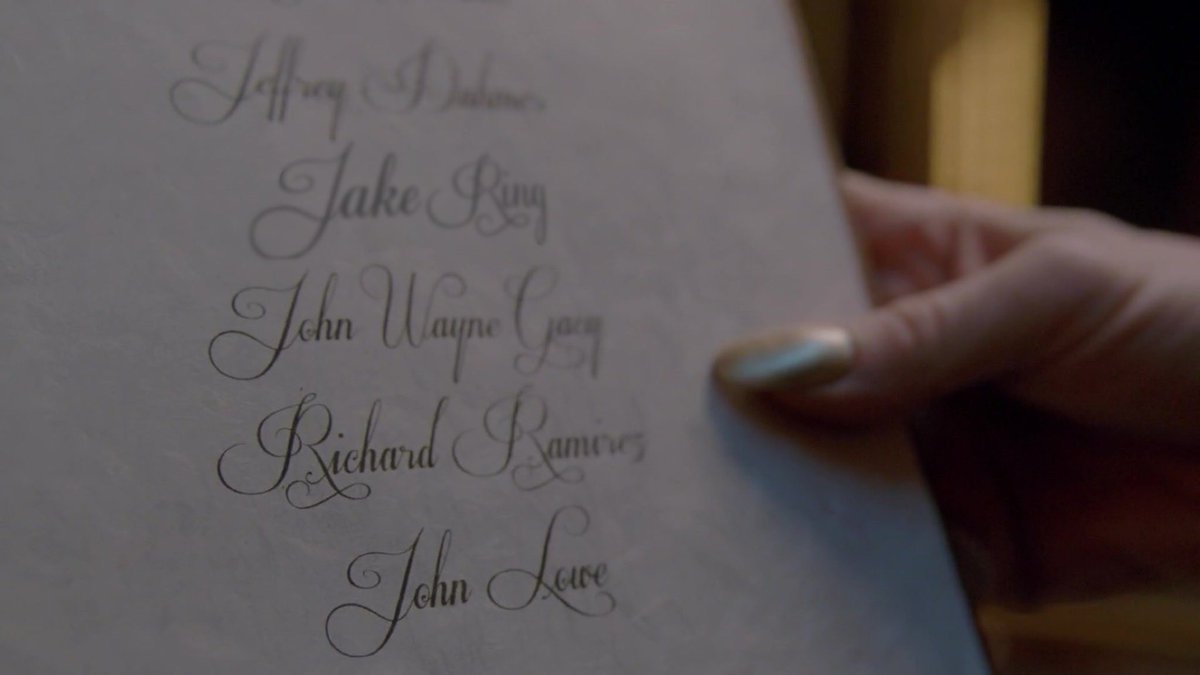 Jeffrey Dahmer
Jake King
John Wayne Gacy
Richard Ramirez
John Lowe